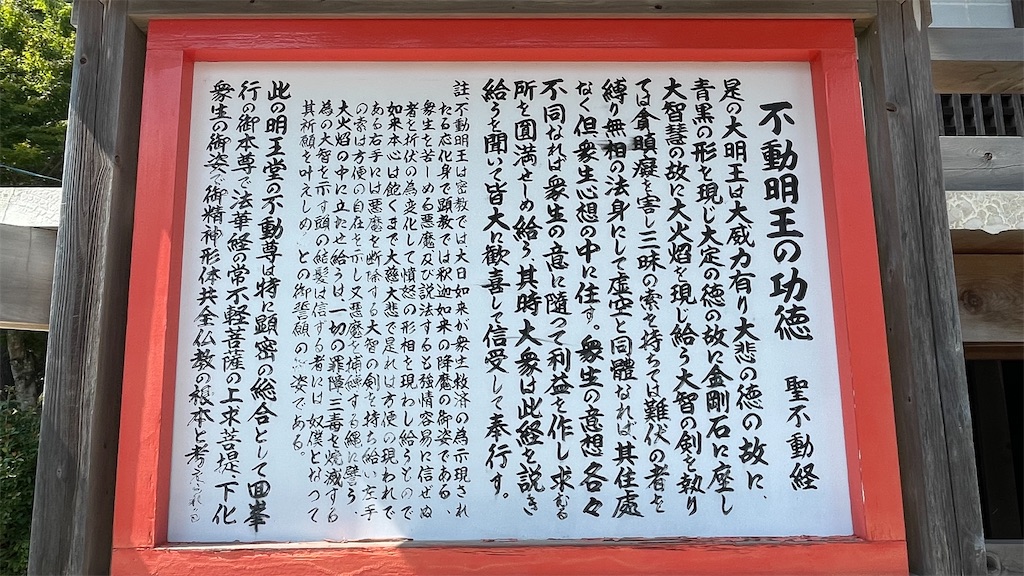 不動明王の功徳　聖不動経
是の大明王は大威力有り大悲の徳の故に、
青黒の形を現じ大定の徳の故に金剛石に座し
大智慧の故に大火焰を現じ給う大智の剣を執り
ては貪瞋癡を害し三昧の索を持ちては難伏の者を
縛り無相の法身にして虚空と同體なれば、其住處
なく但衆生心想の中に住す。衆生の意想各々
不同なれば衆生の意に隨って利益を作し求むる
所を圓満せしめ給う、其時大衆は此経を説き
給うを聞いて皆大に歓喜して信受して奉行す。
註 不動明王は密教では大日如来が衆生救済の為示現され
たる応化身で顕教では釈迦如来の降魔の御姿である、
衆生を苦しめる悪魔及び説法するも強情容易に信ぜぬ
者を折伏の為変化して憤怒の形相を現わし給うもので
如来本心は飽くまで大慈大悲で是れは方便の現われで
ある右手には悪魔を断除する大智の剣を持ち給い左手
の索は方便の自在を示し又悪魔を捕縛する縄に譬う
大火焰の中に立たせ給うは、一切の罪障三毒を焼滅する
為の大智を示す頭の結髪は信する者には奴僕となって
其祈願を叶えしめんとの御誓願の御姿である。
此の明王堂の不動尊は特に顕密の総合として回峯
行の御本尊で法華経の常不軽菩薩の上求菩提、下化
衆生の御姿で御精神形体共全仏教の根本と考えられる